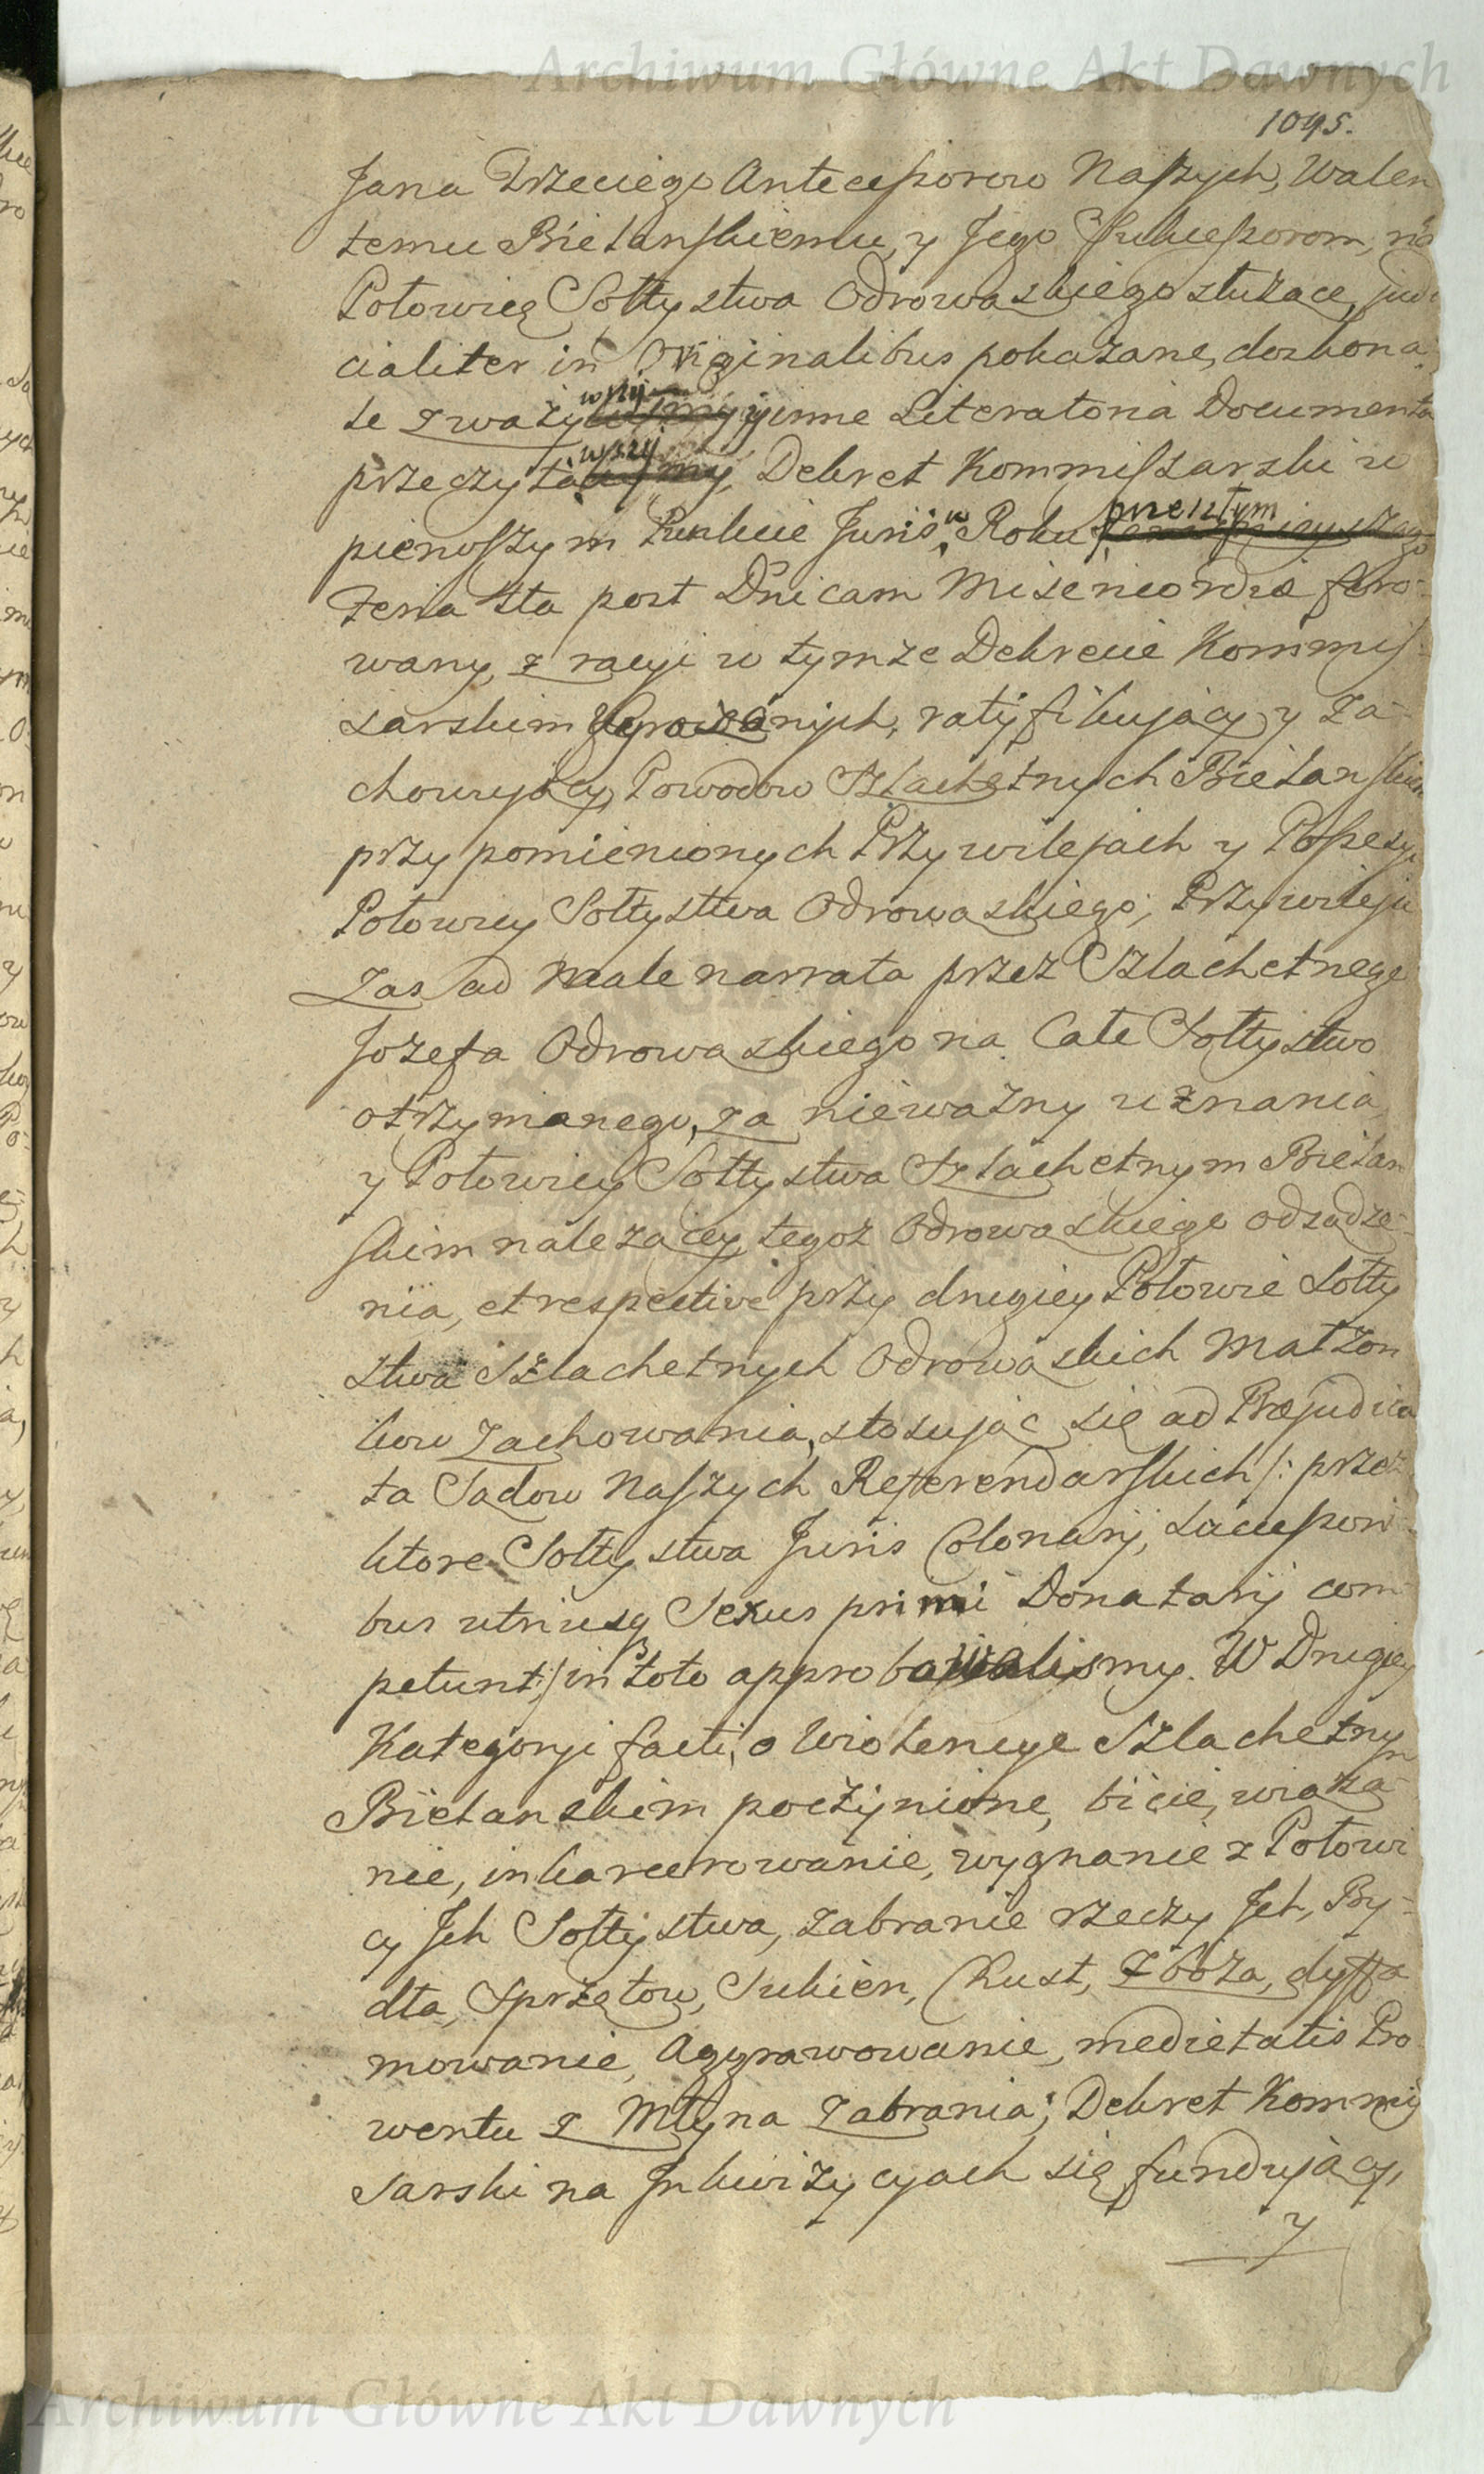 Archiwum Główne Akt Dawnych
1095.
Jana Trzeciego Antecessorow Naszych, Walen
temu Bielanskiemu, y Jego Sukcessorom, na
Połowicę Sołtystwa Odrowąskiego służące, judi
cialiter in Originalibus pokazane, doskona
le zważywszy jnne Literatoria Documenta
przeczytawszy, Dekret Kommissarski w
pierwszym Punkcie Juris, w Roku przeszłym
Feria 4ta post Dnicam Misericordiæ fero-
wany, z racyi w tymże Dekrecie Kommis-
sarskim nych, ratyfikujący y za-
chowujący, Powodow Szlachetnych Bielanskich
przy pomienionych Przywilejach y Possesyi
Połowicy Sołtystwa Odrowąskiego, Przywileju
Zas ad male narrata przez Szlachetnego
Jozefa Odrowąskiego na Całe Sołtystwo
otrzymanego, za nieważny uznania
y Połowicy Sołtystwa Szlachetnym Bielan
skim należącey, tegoż Odrowąskiego odsądze-
nia, et respective przy drugiey Połowie Sołty
stwa Szlachetnych Odrowąskich Małżon
kow zachowania, stosując się ad Præjudica
ta Sądow Naszych Referendarskich /: przez
ktore Sołtystwa Juris Colonarij, Successori
bus utriusq Sexus primi Donatarij com
petunt :/ in toto approbowalismy. W Drugiey
Kategoryi facti, o Wiolencye Szlachetnym
Bielanskim poczynione, bicie, wiąza-
nie, inkarcerowanie, wygnanie z Połowi
cy Jch Sołtystwa, zabranie rzeczy Jch, By-
dła, Sprzętow, Sukien, Chust, Zboża, dyffa
mowanie, Aggrawowanie, medietatis Pro
wentu z Młyna zabrania; Dekret Kommis
sarski na Jnkwizycyach się fundujący,
y
Archiwum Główne Akt Dawnych